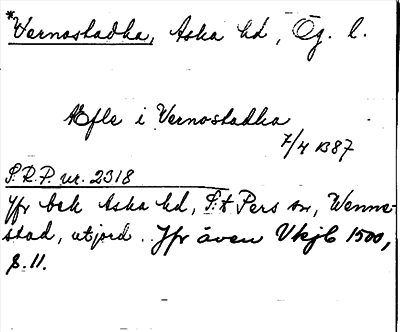 *Vernostadha, Aska hd, Ög. l.
Æfle i Vernostadha
7/4 1387
S.R.P. nr. 2318
Jfr bebk Aska hd, S:t Pers sn, Wenne-
stad, utjord. Jfr även Vkjb 1500,
s. 11.